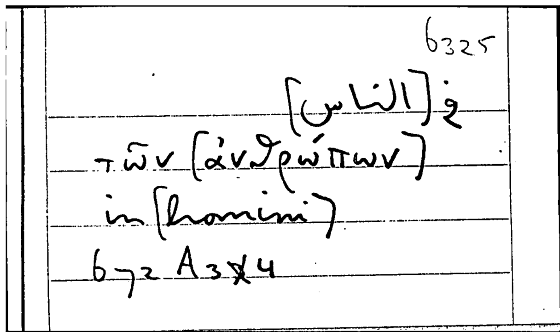 6325
في [الناس]
τῶν [ἀνθρώπων]
in [homini]
672 A 3 4